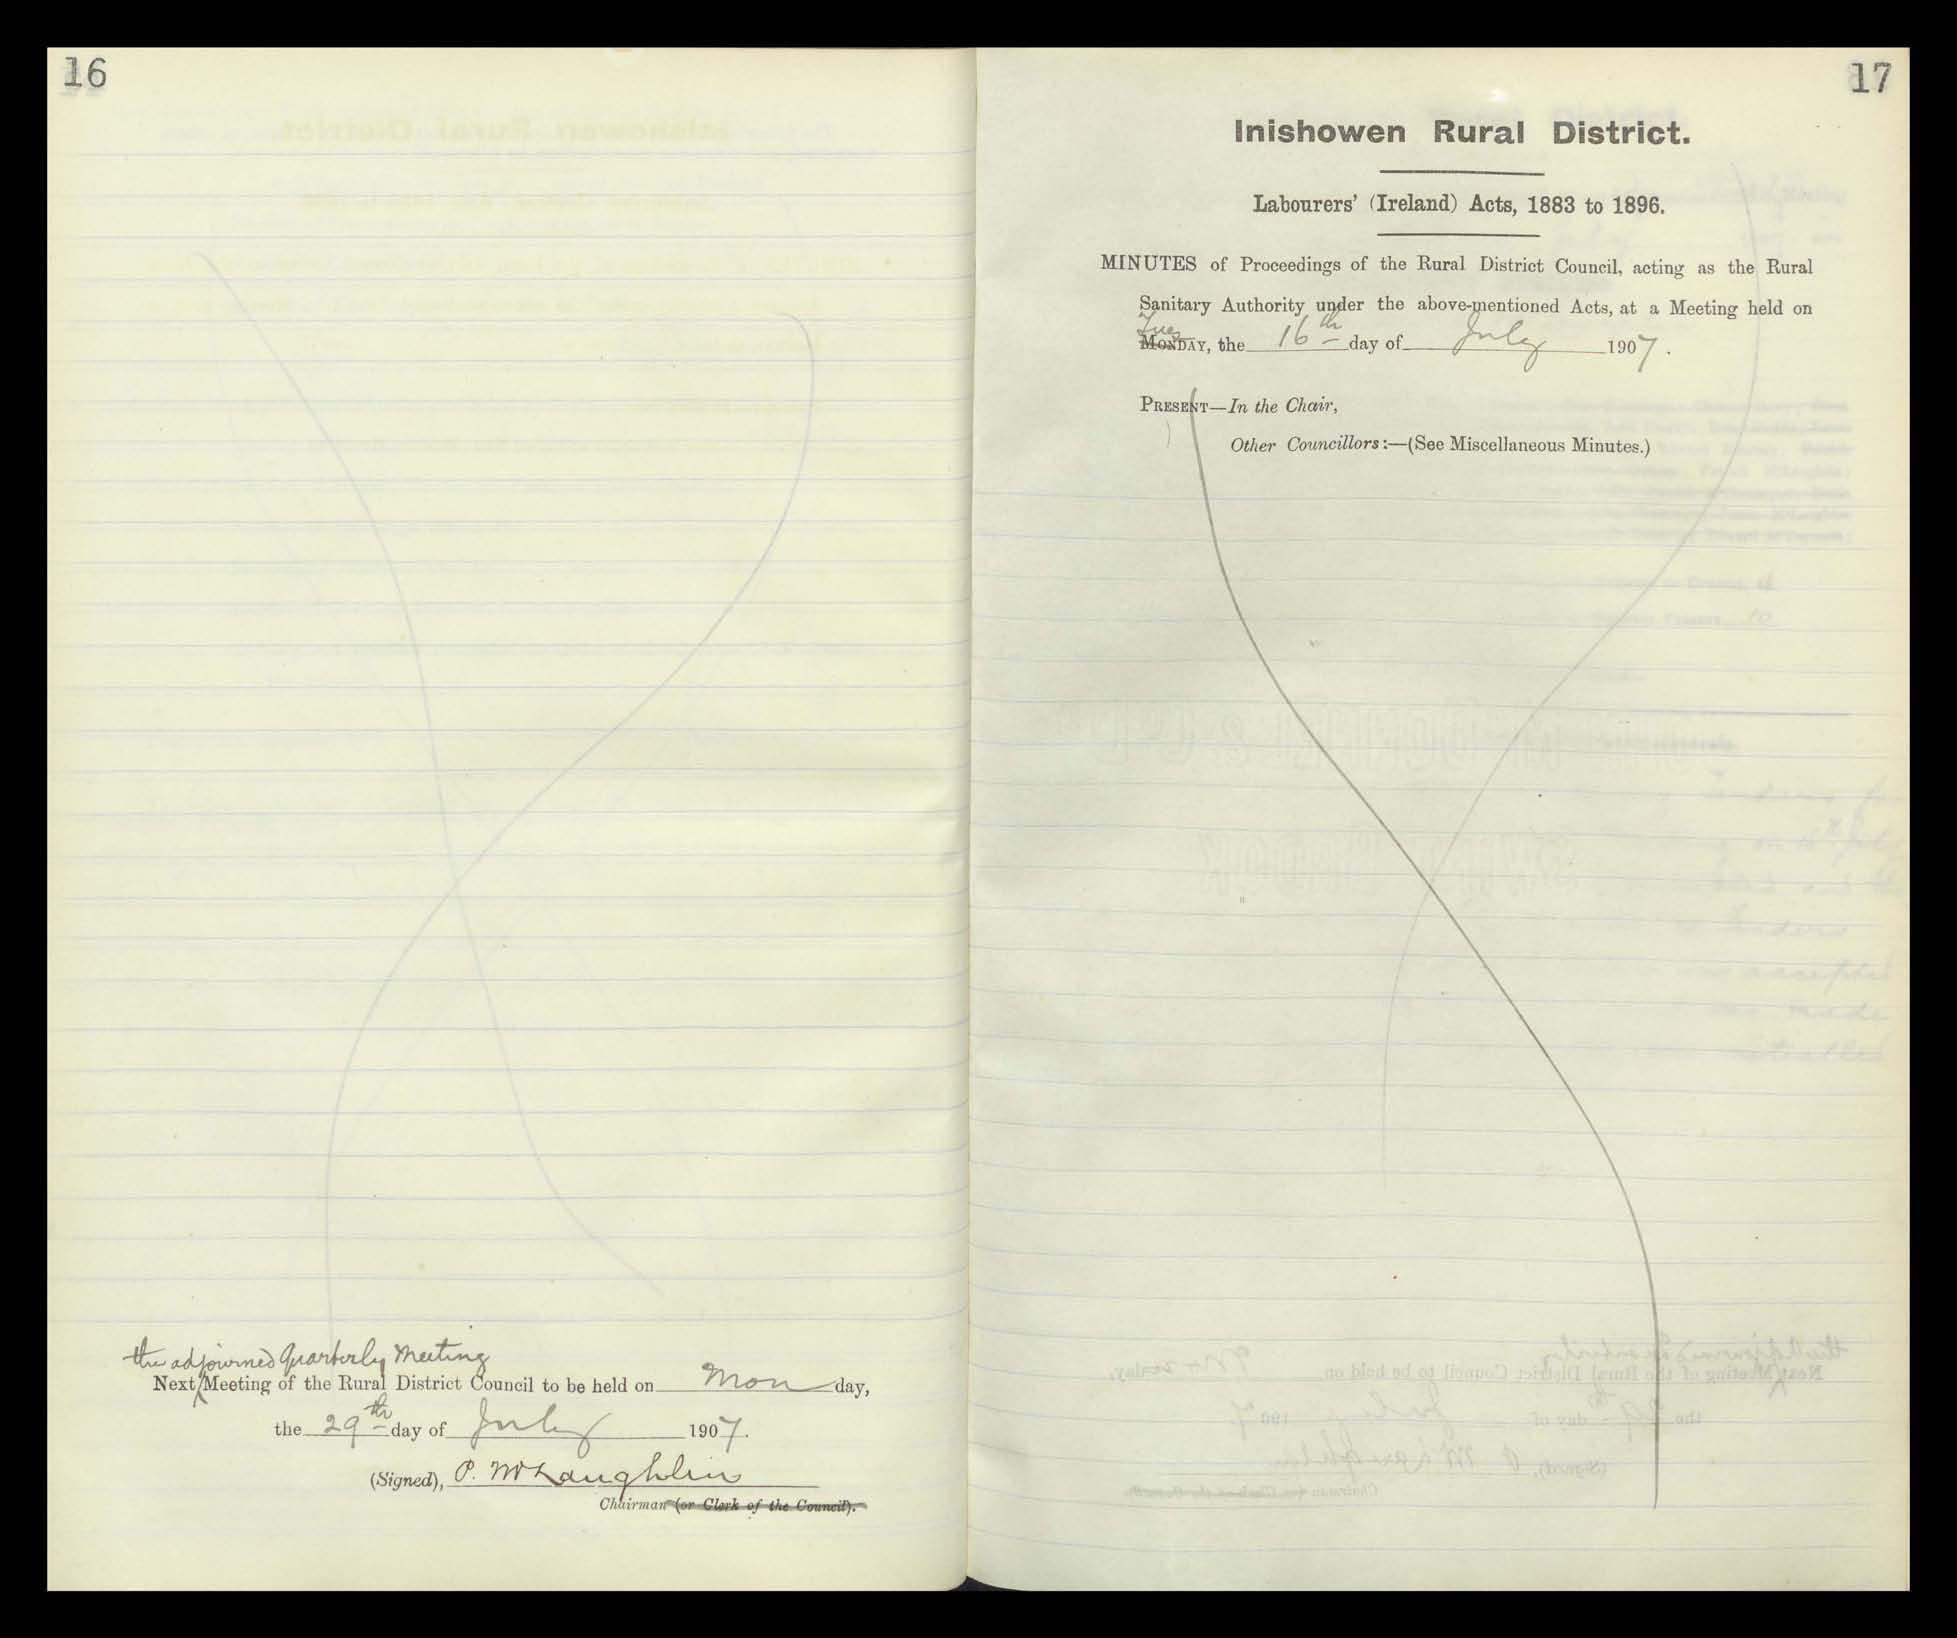 16
the adjourned Quarterly Meeting
Next Meeting of the Rural District Council to be held on Mon day,
the 29th day of July 1907.
(Signed), P. McLaughlin
Chairman (or Clerk of the Council).
17
Inishowen Rural District.
Labourers' (Ireland) Acts, 1883 to 1896.
MINUTES of Proceedings of the Rural District Council, acting as the Rural
Sanitary Authority under the above-mentioned Acts, at a Meeting held on
Tues
MONDAY, the 16th day of July 1907.
PRESENT—In the Chair,
Other Councillors:—(See Miscellaneous Minutes.)